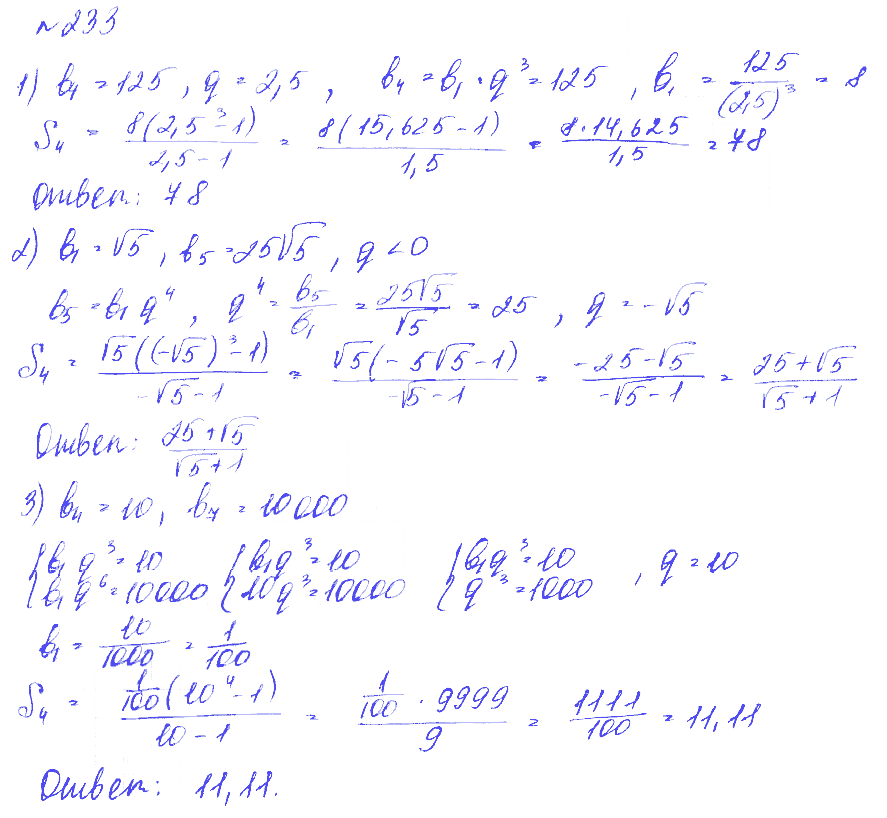 №233
1) b₄ = 125, q = 2,5, b₄ = b₁ · q³ = 125, b₁ = 125/(2,5)³ = 8
S₄ = 8(2,5³-1)/(2,5-1) = 8(15,625-1)/1,5 = 8·14,625/1,5 = 78
Ответ: 78
2) b₁ = √5, b₅ = 25√5, q < 0
b₅ = b₁ q⁴, q⁴ = b₅/b₁ = 25√5/√5 = 25, q = -√5
S₄ = √5((-√5)³-1)/(-√5-1) = √5(-5√5-1)/(-√5-1) = (-25-√5)/(-√5-1) = (25+√5)/(√5+1)
Ответ: (25+√5)/(√5+1)
3) b₄ = 10, b₇ = 10000
{b₁q³=10 {b₁q³=10 {b₁q³=10
{b₁q⁶=10000 {10q³=10000 {q³=1000, q=10
b₁ = 10/1000 = 1/100
S₄ = 1/100(10⁴-1)/(10-1) = 1/100 · 9999/9 = 1111/100 = 11,11
Ответ: 11,11.